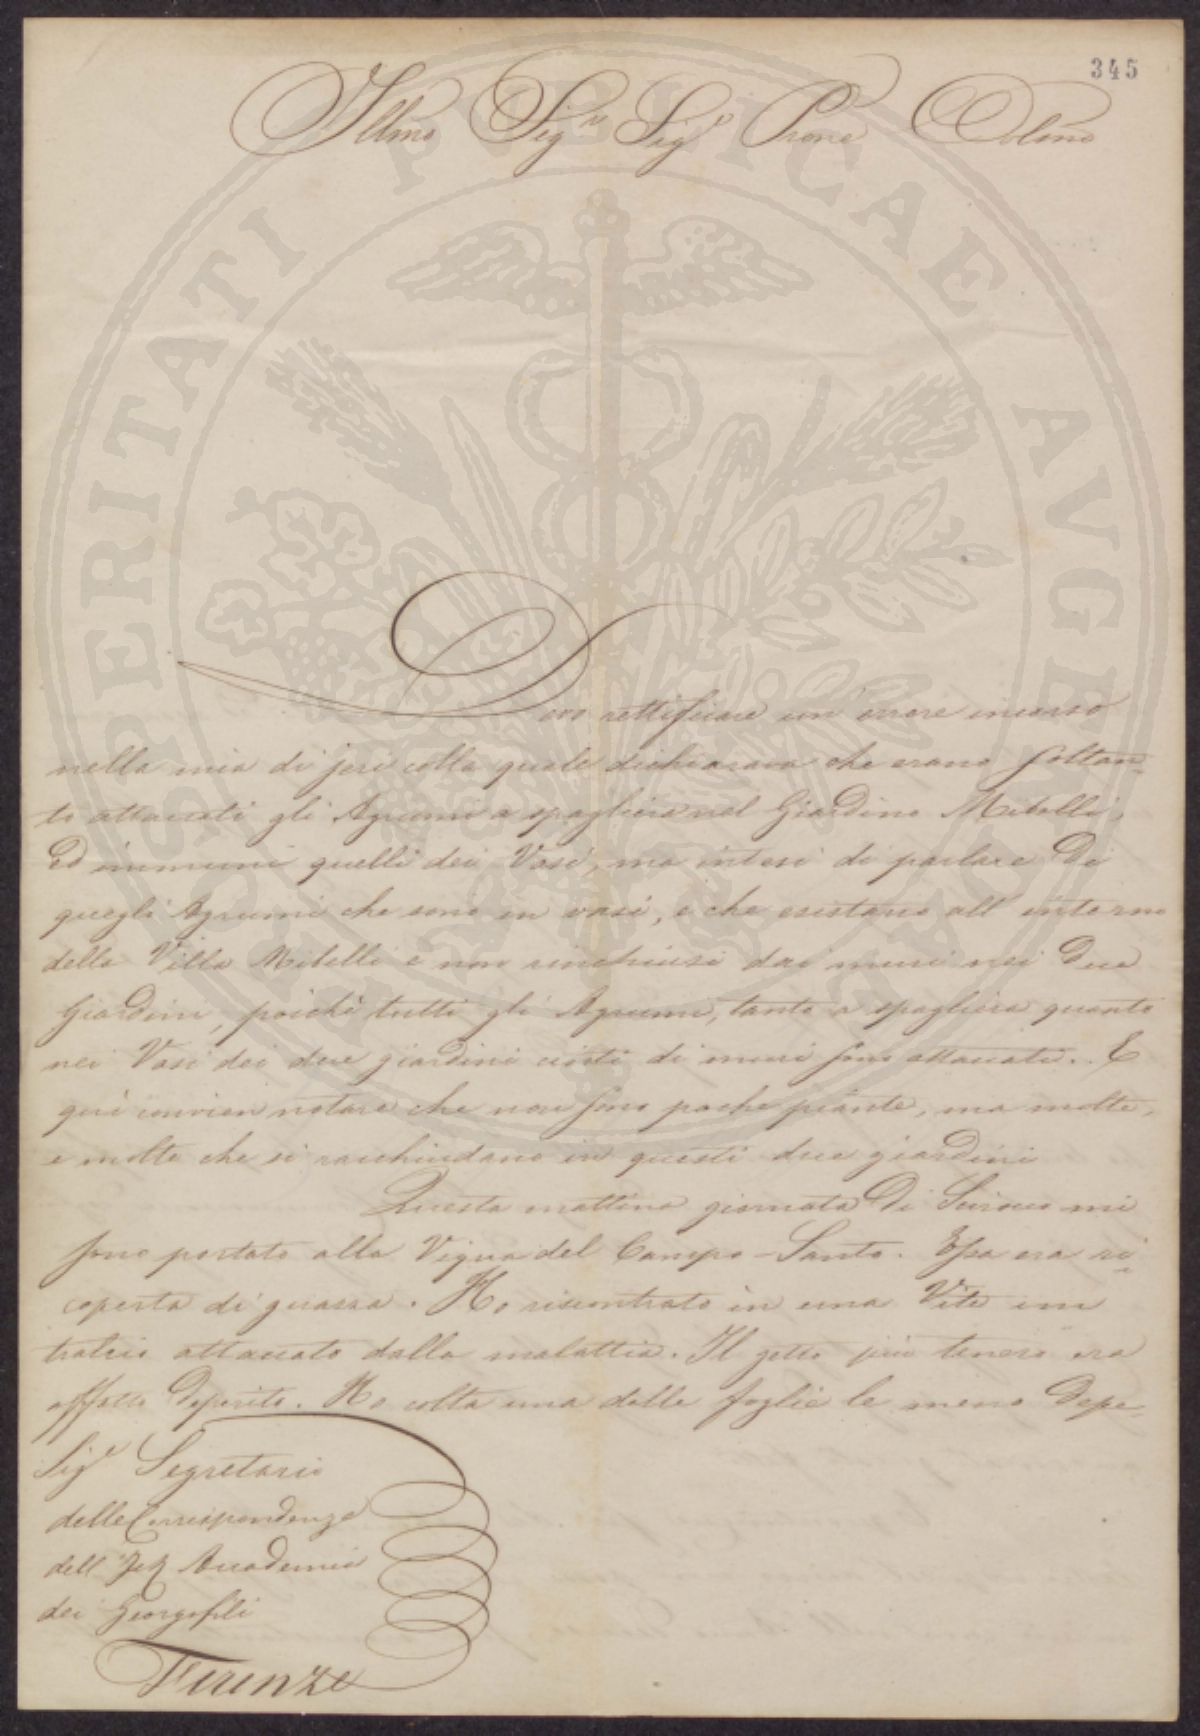 345
Illmo Sig.re Sig.re Prone Colmo
Devo rettificare un'errore incorso
nella mia di jeri colla quale dichiarava che erano soltan-
to attaccati gli Agrumi a spagliera nel Giardino Mibelli,
ed immuni quelli dei Vasi, ma intesi di parlare di
quegli Agrumi che sono in vasi, e che esistano all'intorno
della Villa Mibelli e non rinchiusi dai muri nei due
Giardini, poichè tutti gli Agrumi, tanto a spagliera quanto
nei Vasi dei due giardini cinti di muri sono attaccati. E
quì convien notare che non sono poche piante, ma molte,
e molte che si racchiudano in questi due giardini
Questa mattina giornata di Scirocco mi
sono portato alla Vigna del Campo-Santo. Essa era ri-
coperta di guazza. Ho riscontrato in una Vite un
tralcio attaccato dalla malattia. Il getto più tenero era
affatto deperito. Ho colta una delle foglie le meno depe-
Sig.e Segretario
delle Corrispondenze
dell' I e R Accademia
dei Georgofili
Firenze
PROSPERITATI PUBLICAE AVGENDAE